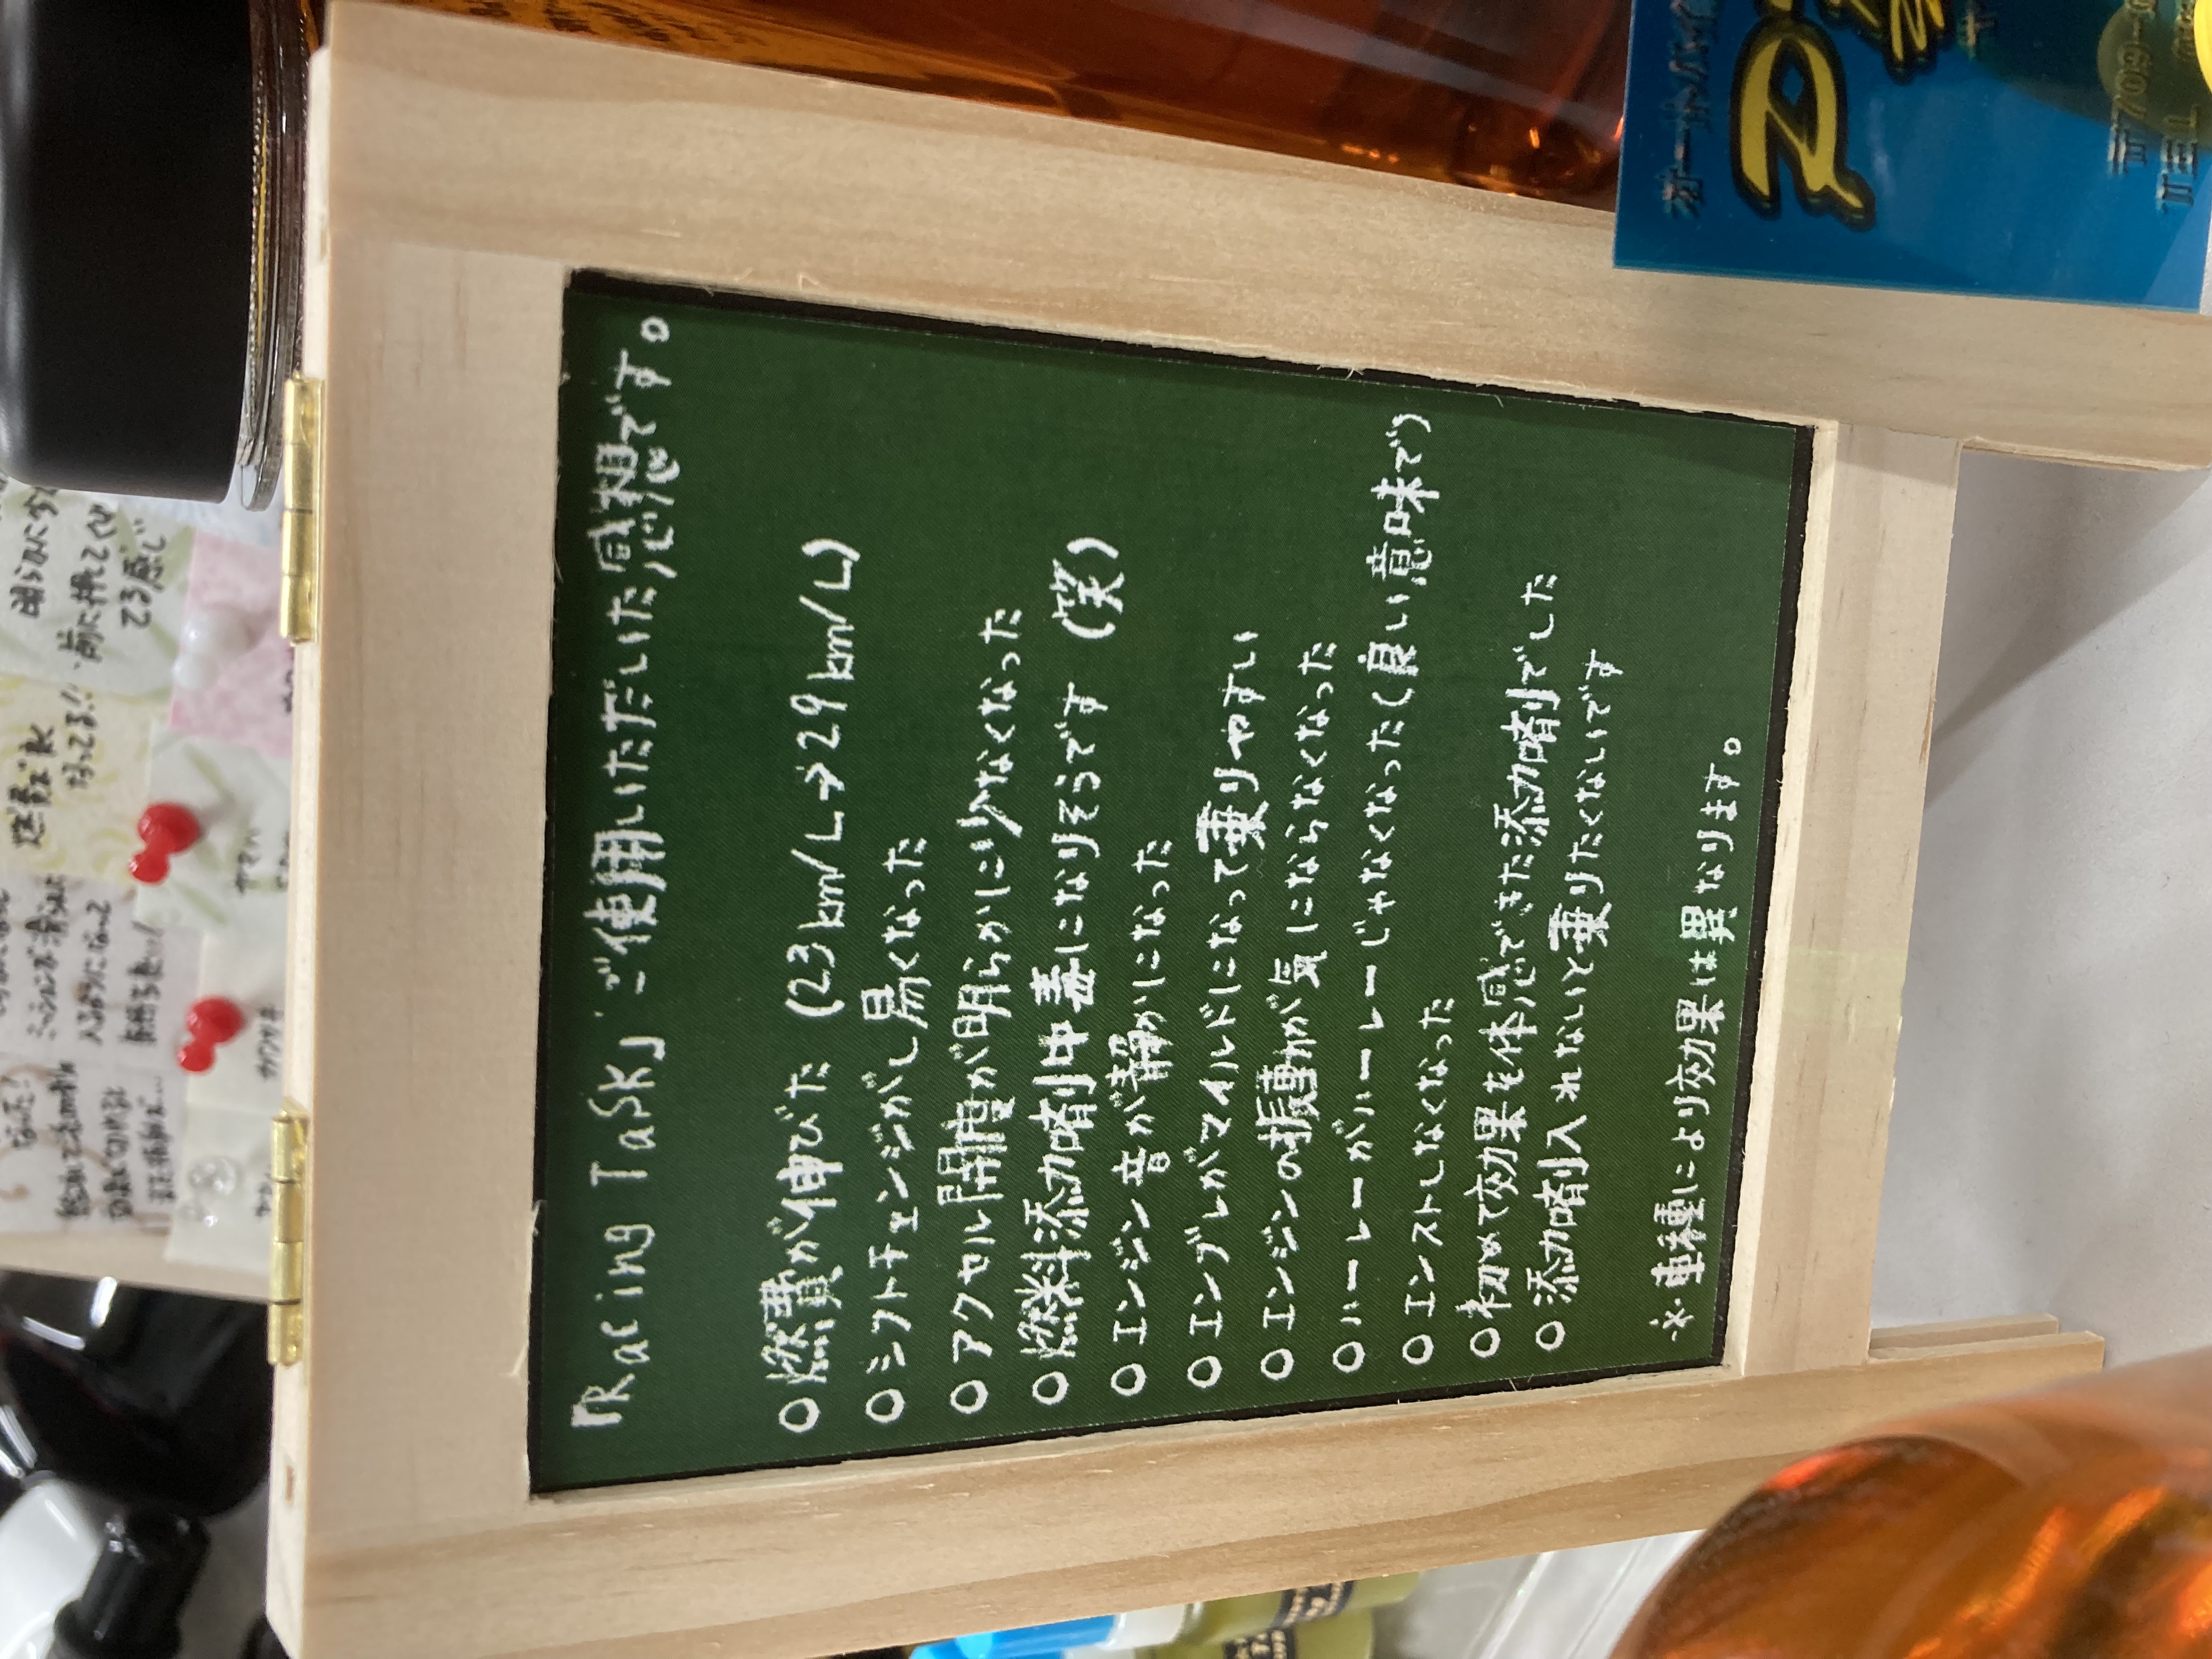 「Racing TaSK」ご使用いただいた感想です。
○燃費が伸びた (23km/L→29km/L)
○シフトチェンジがし易くなった
○アクセル開度が明らかに少なくなった
○燃料添加剤中毒になりそうです (笑)
○エンジン音が静かになった
○エンブレがマイルドになって乗りやすい
○エンジンの振動が気にならなくなった
○ハーレーがハーレーじゃなくなった(良い意味で)
○エンストしなくなった
○初めて効果を体感できた添加剤でした
○添加剤入れないと乗りたくないです
※車種により効果は異なります。
燃費が
なってる!!
前に押してく
てる感じ
ヤマハ
カワサキ
オートバイ
TEL